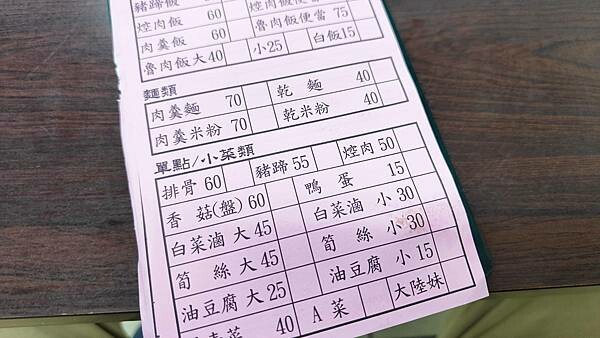 豬蹄飯
焢肉飯 60 焢肉飯便當
肉羹飯 60 魯肉飯便當 75
魯肉飯大40 小25 白飯15
麵類
肉羹麵 70 乾麵 40
肉羹米粉 70 乾米粉 40
單點/小菜類
排骨 60 豬蹄 55 焢肉 50
香菇(盤) 60 鴨蛋 15
白菜滷 大 45 白菜滷 小 30
筍絲 大 45 筍絲 小 30
油豆腐 大 25 油豆腐 小 15
菜 40 A菜 大陸妹